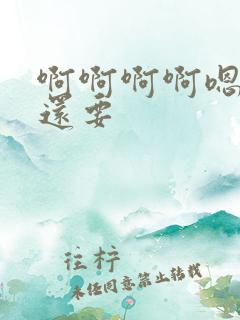 啊啊啊啊嗯
還要
往梓
未经同意禁止转载